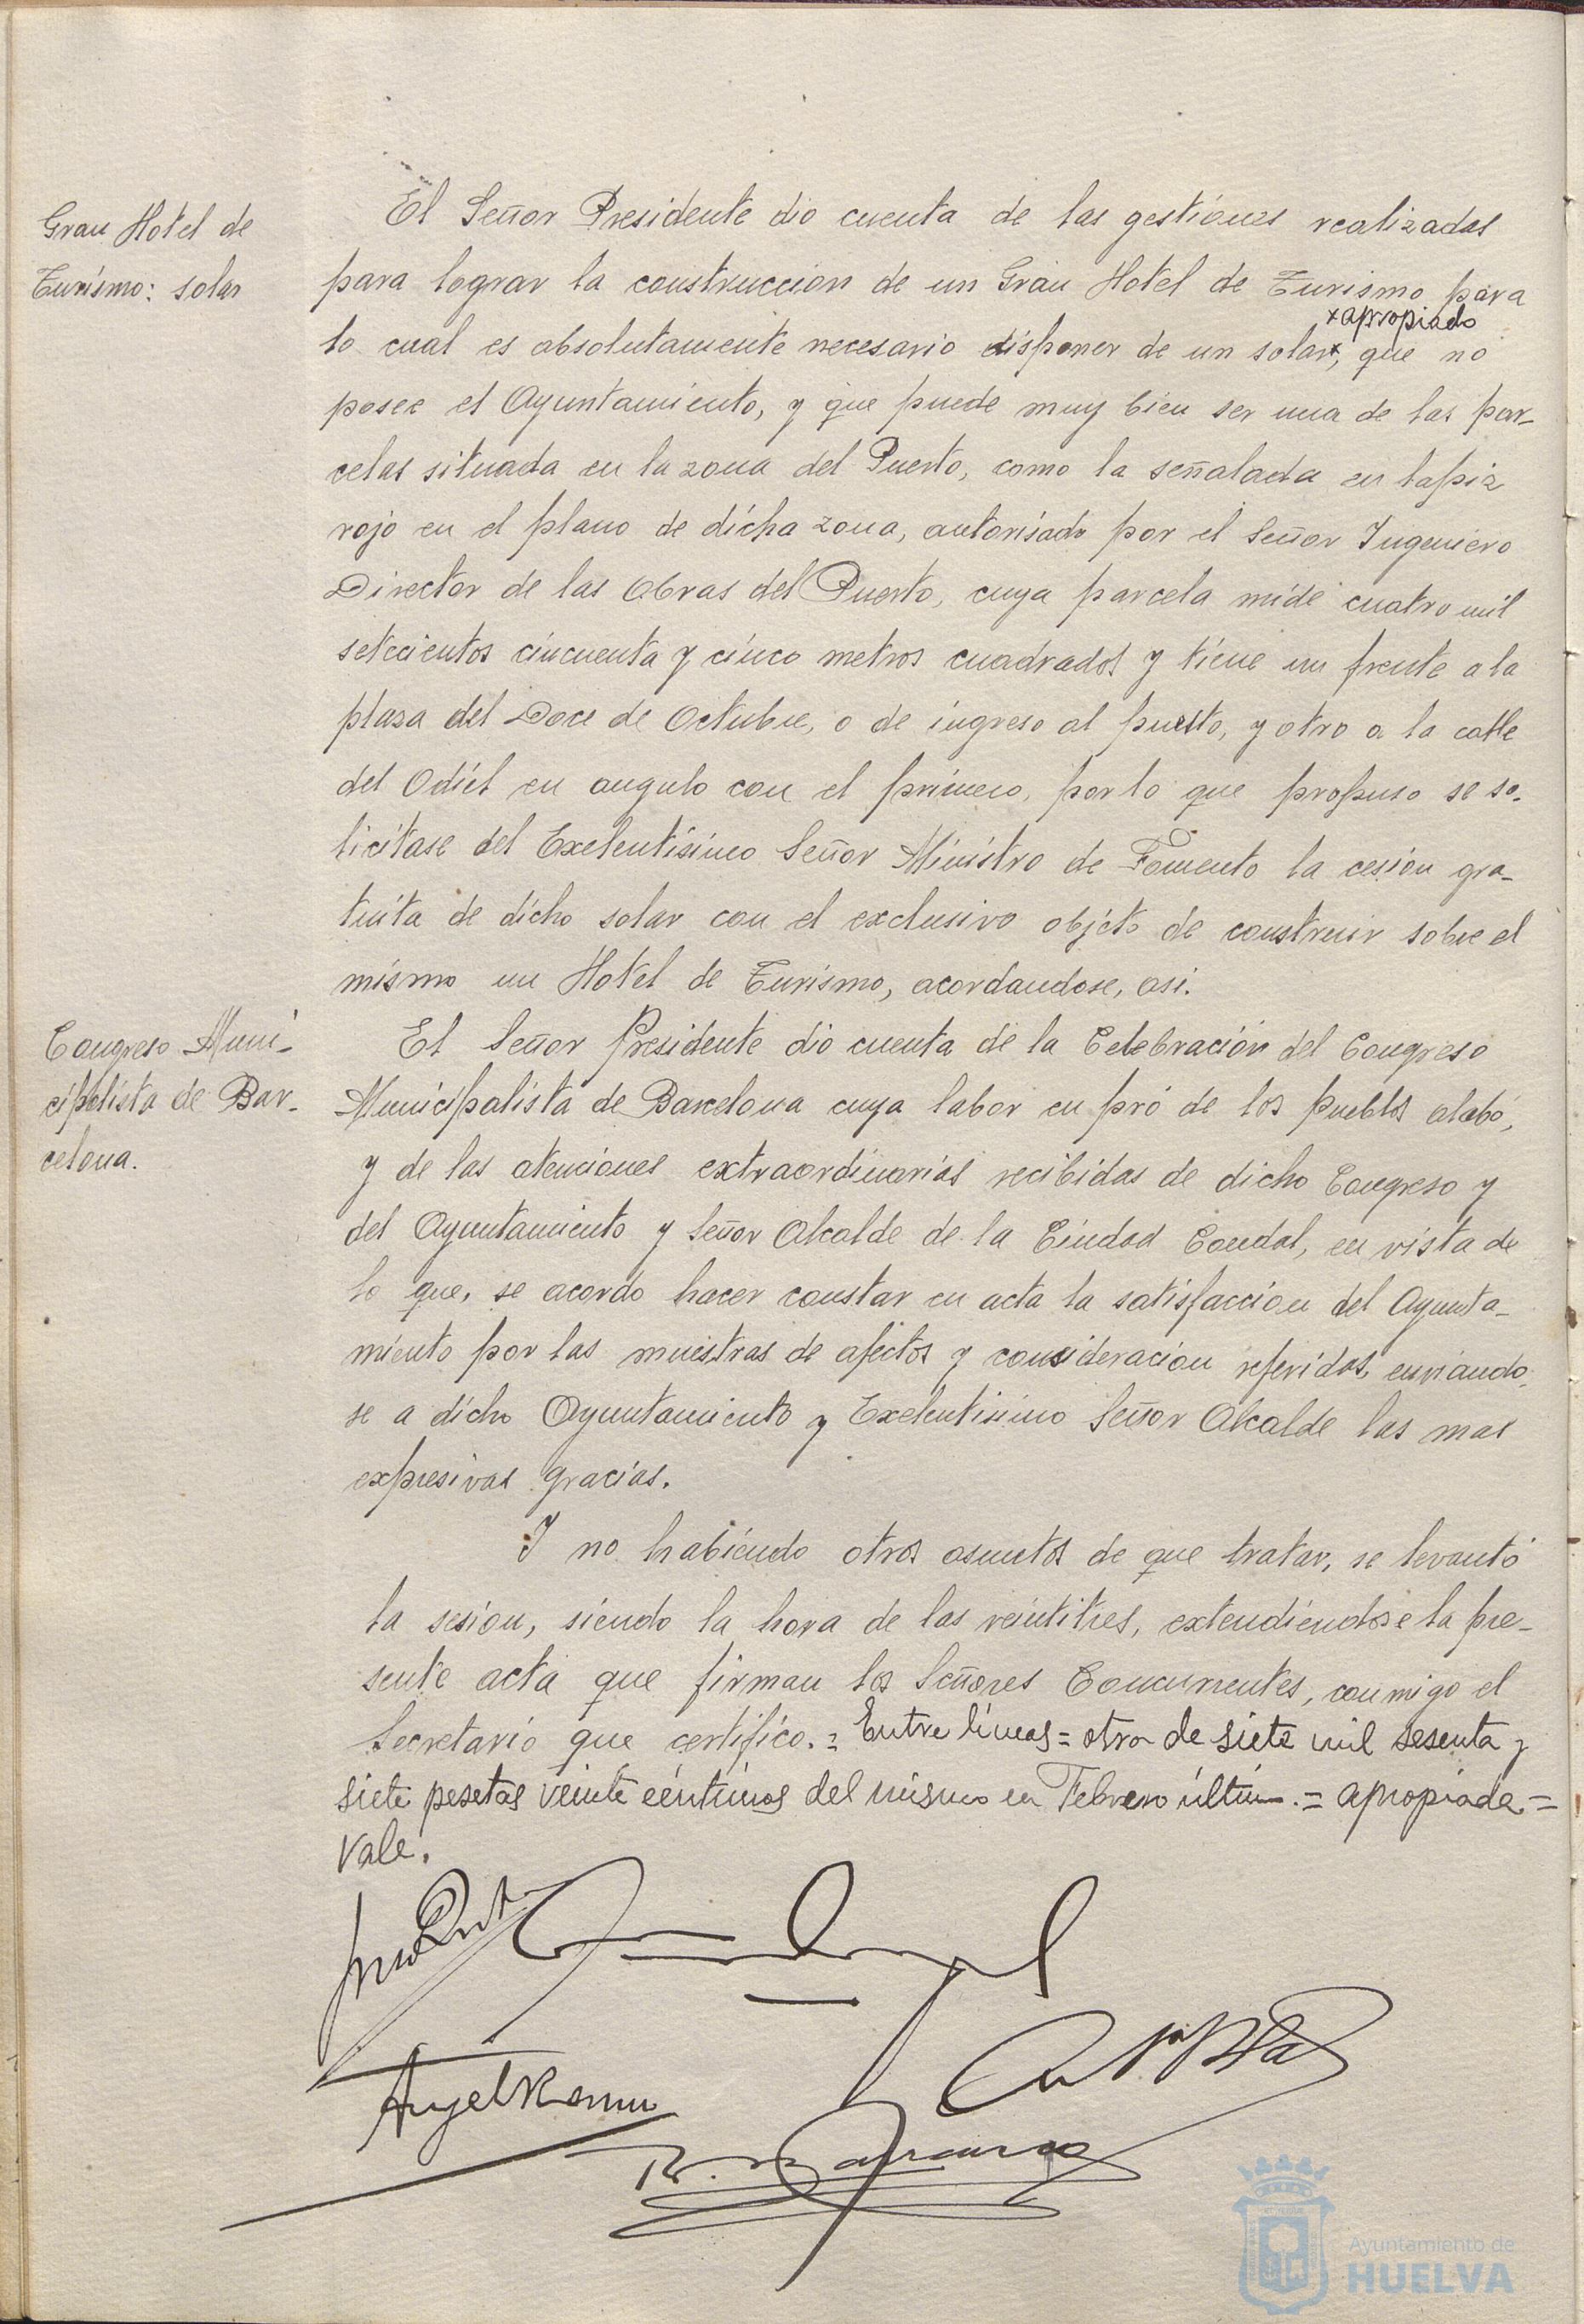 Gran Hotel de
Turismo: solar
El Señor Presidente dio cuenta de las gestiones realizadas
para lograr la construccion de un Gran Hotel de Turismo para
x apropiado
lo cual es absolutamente necesario disponer de un solar x, que no
posee el Ayuntamiento, y que puede muy bien ser una de las par-
celas situada en la zona del Puerto, como la señalada en lapiz
rojo en el plano de dicha zona, autorisado por el Señor Ingeniero
Director de las Obras del Puerto, cuya parcela mide cuatro mil
setecientos cincuenta y cinco metros cuadrados y tiene un frente a la
plasa del Doce de Octubre, o de ingreso al puerto, y otro a la calle
del Odiel en angulo con el primero, por lo que propuso se so-
licitase del Exelentisimo Señor Ministro de Fomento la cesion gra-
tuita de dicho solar con el exclusivo objeto de construir sobre el
mismo un Hotel de Turismo, acordandose, asi.
Congreso Muni-
cipalista de Bar-
celona.
El Señor Presidente dio cuenta de la Celebración del Congreso
Municipalista de Barcelona cuya labor en pró de los pueblos alabó,
y de las atenciones extraordinarias recibidas de dicho Congreso y
del Ayuntamiento y Señor Alcalde de la Ciudad Condal, en vista de
lo que, se acordo hacer constar en acta la satisfaccion del Ayunta-
miento por las muestras de afectos y consideracion referidas, enviando-
se a dicho Ayuntamiento y Exelentisimo Señor Alcalde las mas
expresivas gracias.
Y no habiendo otros asuntos de que tratar, se levantó
la sesion, siendo la hora de las veintitres, extendiendose la pre-
sente acta que firman los Señores Concurrentes, conmigo el
Secretario que certifico. = Entre líneas = otra de siete mil sesenta y
siete pesetas veinte céntimos del mismo en Febrero último. = apropiado =
Vale.
Ayuntamiento de
HUELVA